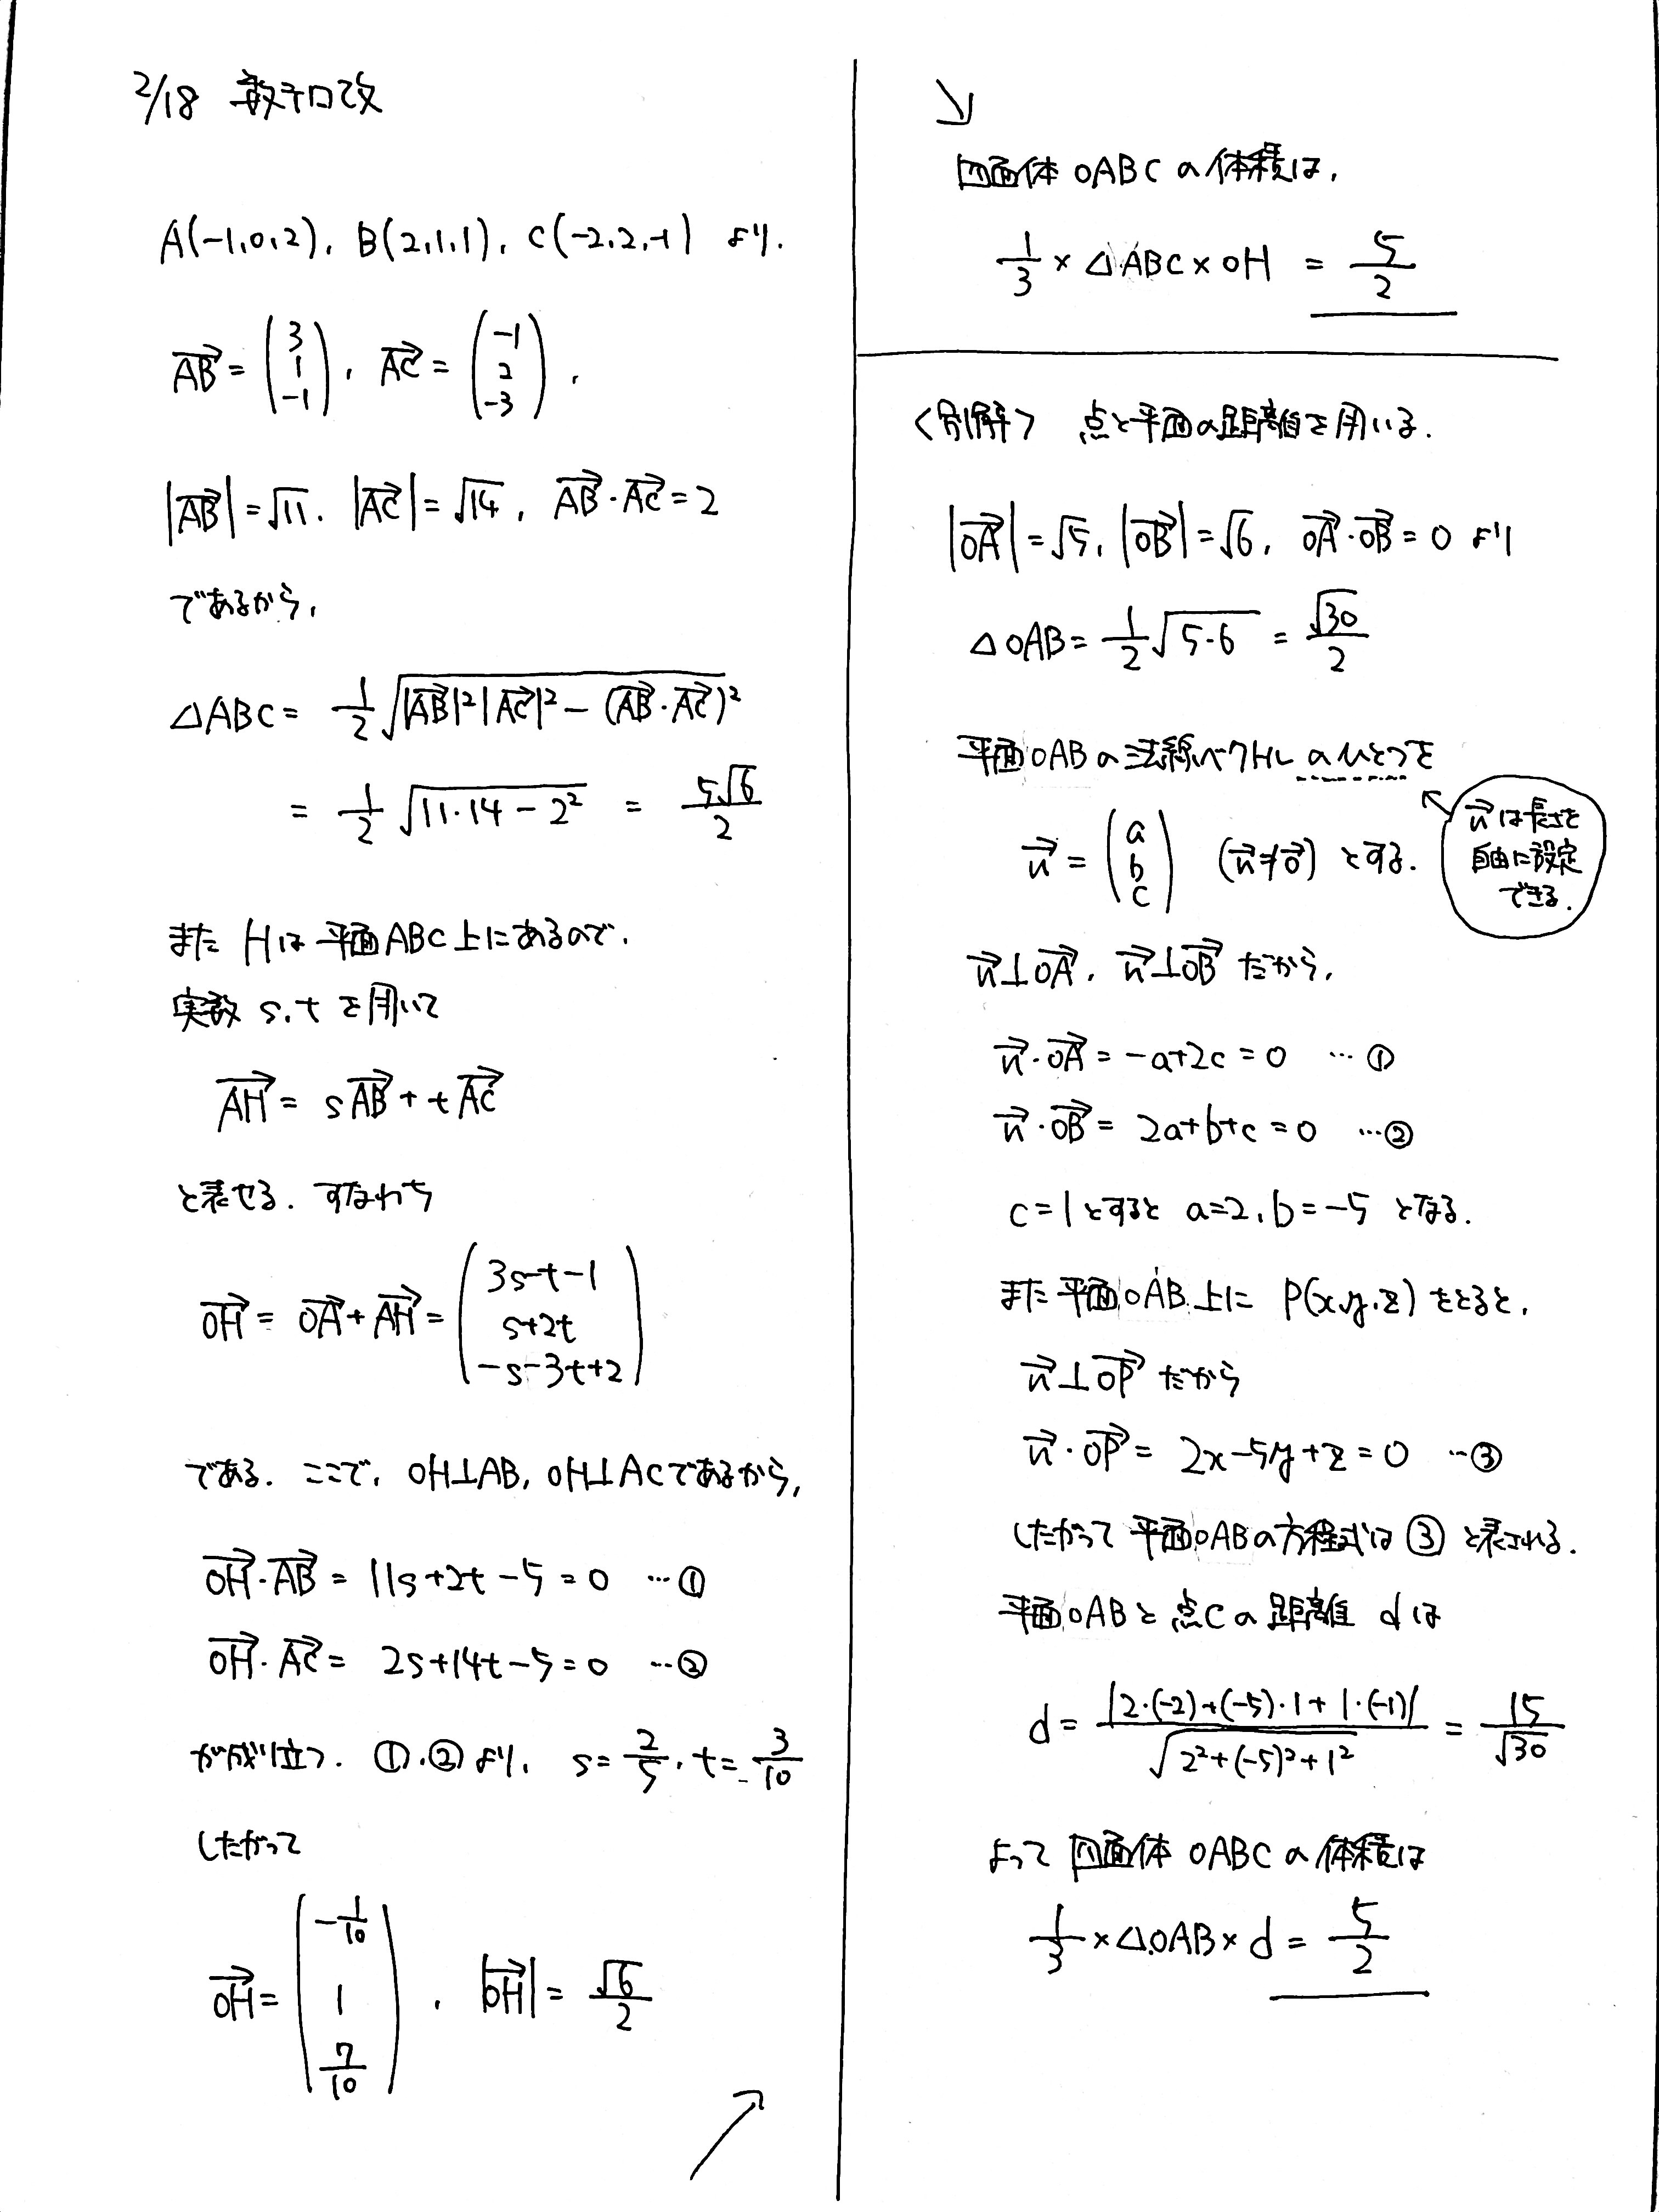 2/18 数千口改
A(-1,0,2), B(2,1,1), C(-2,2,-1) より.
→AB = (3 1 -1), →AC = (-1 2 -3),
|→AB| = √11, |→AC| = √14, →AB・→AC = 2
であるから,
△ABC = 1/2 √(|→AB|²|→AC|² - (→AB・→AC)²)
= 1/2 √(11・14 - 2²) = 5√6/2
また Hは 平面ABC上にあるので,
実数 s,t を用いて
→AH = s→AB + t→AC
と表せる. すなわち
→OH = →OA + →AH = (3s-t-1 s+2t -s-3t+2)
である. ここで, OH⊥AB, OH⊥ACであるから,
→OH・→AB = 11s+2t-5=0 …①
→OH・→AC = 2s+14t-5=0 …②
が成り立つ. ①,②より, s=2/5, t=3/10
したがって
→OH = (-1/10 1 7/10), |→OH| = √6/2
↗
↘
四面体 OABCの体積は,
1/3 × △ABC × OH = 5/2
<別解> 点と平面の距離を用いる.
|→OA| = √5, |→OB| = √6, →OA・→OB = 0 より
△OAB = 1/2 √(5・6) = √30/2
平面OABの法線ベクトルのひとつを
→n = (a b c) (→n≠→0) とする.
→nは長さを
自由に設定
できる.
→n⊥→OA, →n⊥→OB だから,
→n・→OA = -a+2c=0 …①
→n・→OB = 2a+b+c=0 …②
c=1とすると a=2, b=-5 となる.
また平面OAB上に P(x,y,z) をとると,
→n⊥→OP だから
→n・→OP = 2x-5y+z=0 …③
したがって 平面OABの方程式は ③ と表される.
平面OABと 点Cの距離 dは
d = |2・(-2)+(-5)・1+1・(-1)| / √(2²+(-5)²+1²) = 15/√30
よって 四面体 OABCの体積は
1/3 × △OAB × d = 5/2